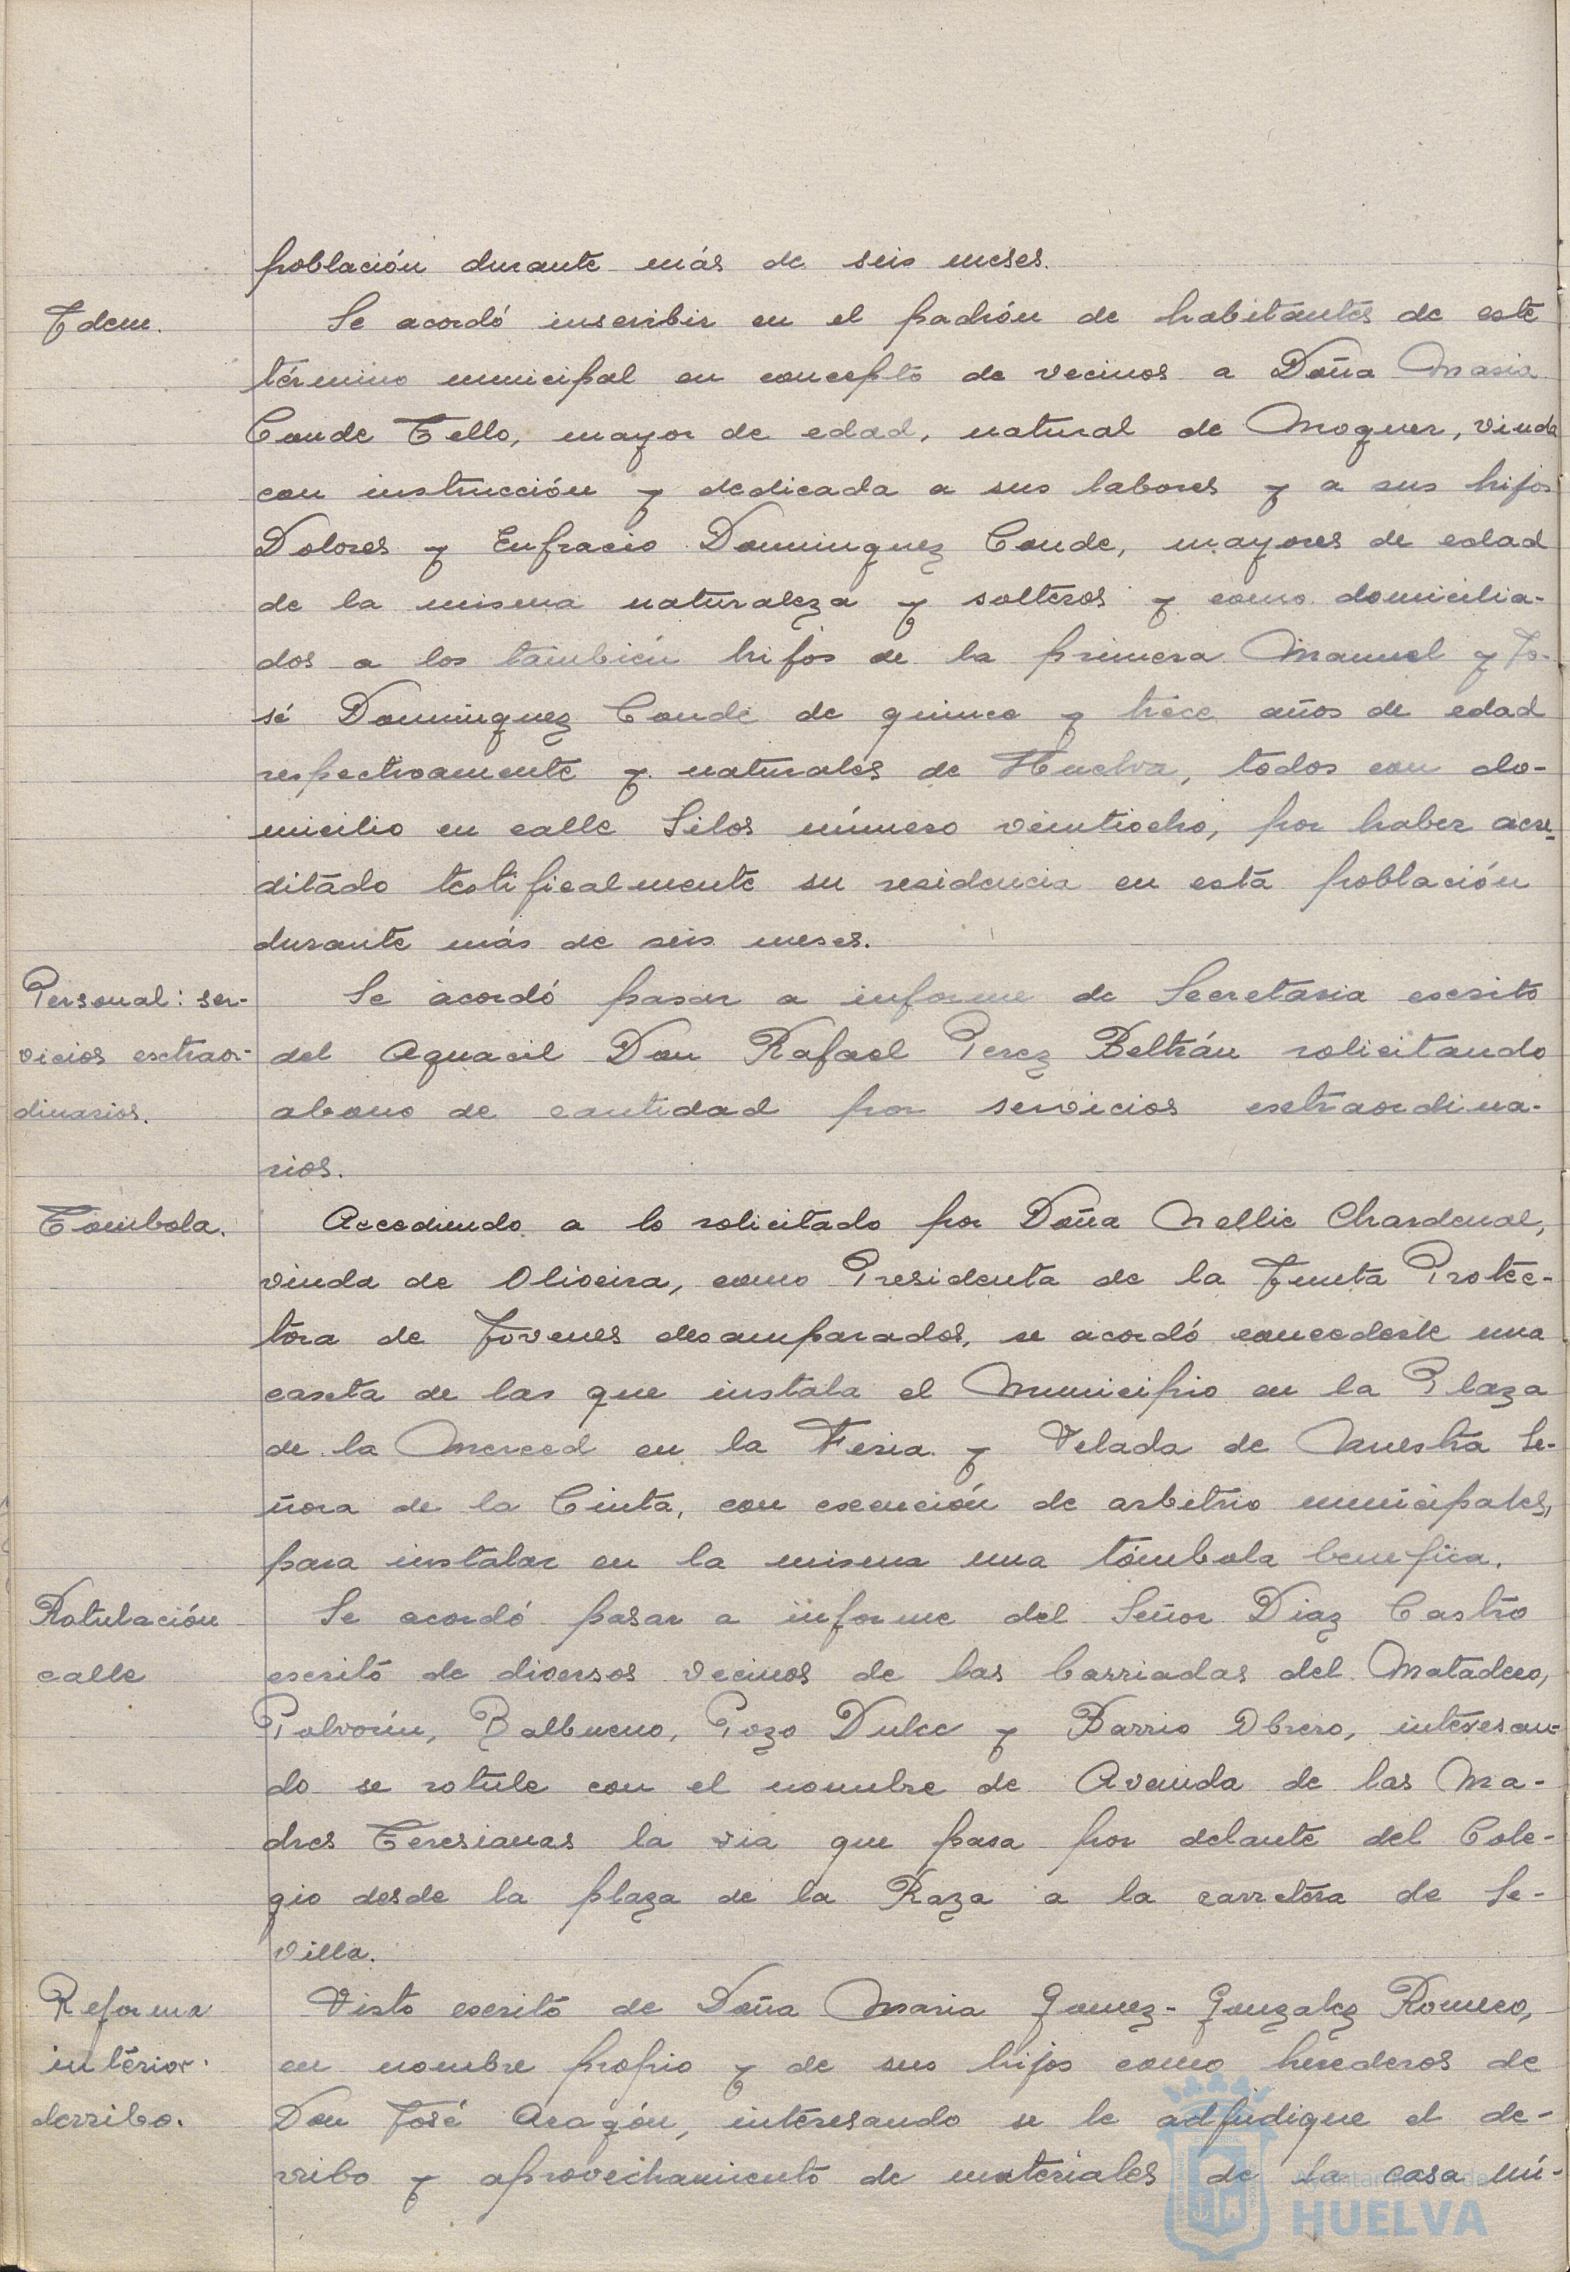 población durante más de seis meses.
Idem.
Se acordó inscribir en el padrón de habitantes de este
término municipal en concepto de vecinos a Doña Maria
Conde Tello, mayor de edad, natural de Moguer, viuda
con instrucción y dedicada a sus labores y a sus hijos
Dolores y Eufracio Dominguez Conde, mayores de edad
de la misma naturaleza y solteros y como domicilia-
dos a los también hijos de la primera Manuel y Jo-
sé Dominguez Conde de quince y trece años de edad
respectivamente y naturales de Huelva, todos con do-
micilio en calle Silos número veintiocho, por haber acre-
ditado testificalmente su residencia en esta población
durante más de seis meses.
Personal: ser-
vicios esctraor-
dinarios.
Se acordó pasar a informe de Secretaria escrito
del Aguacil Don Rafael Perez Beltrán solicitando
abono de cantidad por servicios esctraordina-
rios.
Tómbola.
Accediendo a lo solicitado por Doña Nellie Chardenal,
viuda de Oliveira, como Presidenta de la Junta Protec-
tora de Jóvenes desamparados, se acordó concederle una
caseta de las que instala el Municipio en la Plaza
de la Merced en la Feria y Velada de Nuestra Se-
ñora de la Cinta, con escención de arbitrio municipales,
para instalar en la misma una tómbola benefica.
Rotulación
calle
Se acordó pasar a informe del Señor Diaz Castro
escrito de diversos vecinos de las barriadas del Matadero,
Polvorín, Balbueno, Pozo Dulce y Barrio Obrero, interesan-
do se rotule con el nombre de Avenida de las Ma-
dres Teresianas la via que pasa por delante del Cole-
gio desde la plaza de la Raza a la carretera de Se-
villa.
Reforma
interior.
derribo.
Visto escrito de Doña Maria Gomez-Gonzalez Romero,
en nombre propio y de sus hijos como herederos de
Don José Aragón, interesando se le adjudique el de-
rribo y aprovechamiento de materiales de la casa nú-
Ayuntamiento de
HUELVA